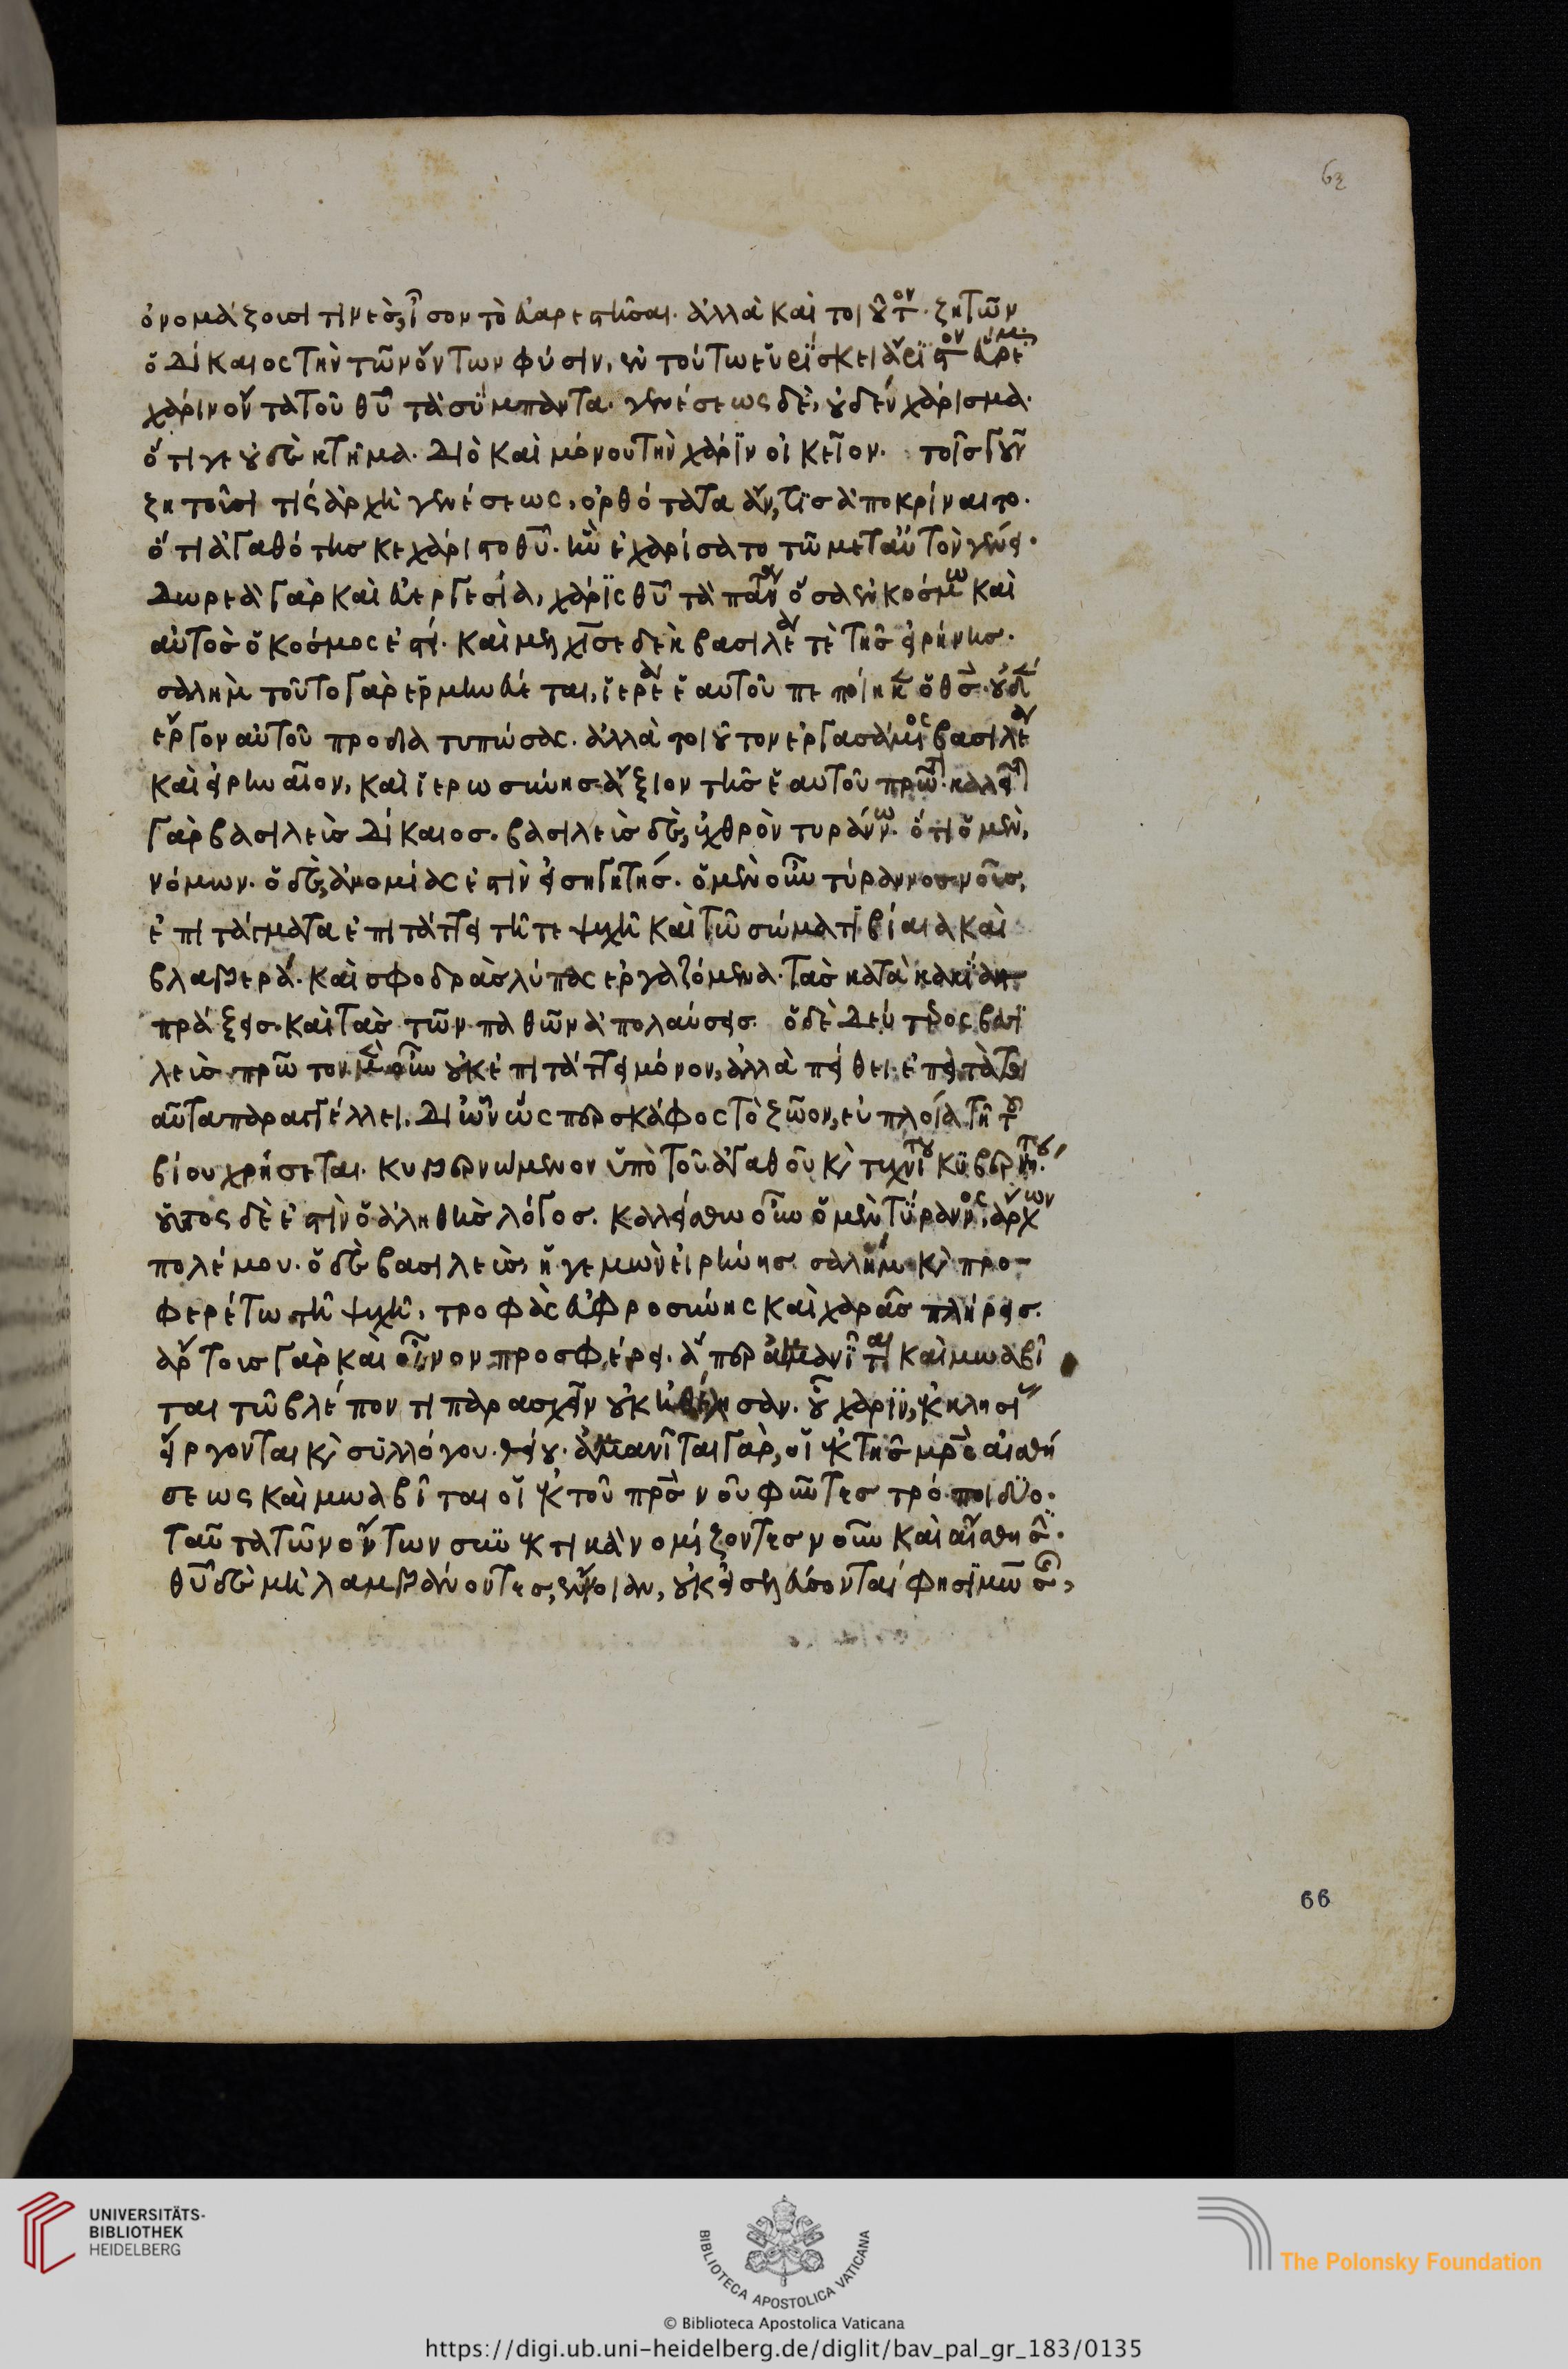 62
ὀνομάζουσί τινες, ἴσον τὸ εὐαρεστῆσαι. ἀλλὰ καὶ τοιοῦτον. ζητῶν
ὁ δίκαιος τὴν τῶν ὄντων φύσιν, ἓν τοῦτο εὑρίσκει ἄριστον εὕρεμα
χάριν ὄντα τοῦ θυ τὰ σύμπαντα. γενέσεως δὲ, οὐδὲν χάρισμα.
ὅτί γε οὐδὲ κτῆμα. διὸ καὶ μόνου τὴν χάριν οἰκεῖον. τοῖς γοῦν
ζητοῦσι τίς ἀρχὴ γενέσεως, ὀρθότατα ἄν τις ἀποκρίναιτο.
ὅτι ἀγαθότης κεχάριστο θυ. ἣν ἐχαρίσατο τῶ μετ' αὐτὸν γένει.
δωρεὰ γὰρ καὶ εὐεργεσία, χάρις θυ τὰ πάντα ὅσα ἐν κόσμω καὶ
αὐτὸς ὁ κόσμος ἐστί. καὶ μελχισεδὲκ βασιλέα τὲ τῆς εἰρήνης.
σαλὴμ τοῦτο γὰρ ἑρμηνεύεται, ἱερέα ἑαυτοῦ πεποίηκεν ὁ θς. οὐδὲν
ἔργον αὐτοῦ προδιατυπώσας. ἀλλὰ τοιοῦτον ἐργασάμενος βασιλέα
καὶ εἰρηναῖον, καὶ ἱερωσύνης ἄξιον τῆς ἑαυτοῦ πρῶτον. καλεῖται
γὰρ βασιλεὺς δίκαιος. βασιλεὺς δὲ, ἐχθρὸν τυράννω. ὅτι ὁ μὲν,
νόμων. ὁ δὲ, ἀνομίας ἐστὶν εἰσηγητής. ὁ μὲν οὖν τύραννος νοῦς,
ἐπιτάγματα ἐπιτάττει τῆ τε ψυχῆ καὶ τῶ σώματι βίαια καὶ
βλαβερά. καὶ σφοδρὰς λύπας ἐργαζόμενα. τὰς κατὰ κακίαν
πράξεις. καὶ τὰς τῶν παθῶν ἀπολαύσεις. ὁ δὲ δεύτερος βασι
λεὺς πρῶτον μὲν οὖν οὐκ ἐπιτάττει μόνον, ἀλλὰ πείθει. ἔπειτα
αῦτα παραγγέλλει. δι' ὧν ὡς περ σκάφος τὸ ζῶον, εὐπλοία τῆ τοῦ
βίου χρήσεται. κυβερνώμενον ὑπὸ τοῦ ἀγαθοῦ κ τεχνίτου κυβερνήτου.
οὗτος δὲ ἐστὶν ὁ ἀληθὴς λόγος. καλείσθω οὖν ὁ μὲν τύραννος, ἄρχων
πολέμου. ὁ δὲ βασιλεὺς, ἡγεμὼν εἰρήνης σαλήμ. κ προ-
φερέτω τῆ ψυχῆ, τροφὰς εὐφροσύνης καὶ χαρᾶς πλήρεις.
ἄρτους γὰρ καὶ οἶνον προσφέρει. ἅπερ ἀμμανῖται καὶ μωαβῖ
ται τῶ βλέποντι παρασχεῖν οὐκ ἠθέλησαν. οὗ χάριν, ἐκκλησίας
εἴργονται κ συλλόγου θείου. ἀμμανῖται γὰρ, οἱ ἐκ τῆς μρς αἰσθή
σεως καὶ μωαβῖται οἱ ἐκ τοῦ πρς νοῦ φύντες τρόποι δύο.
ταῦτα τῶν ὄντων συνεκτικὰ νομίζοντες νοῦν καὶ αἴσθησιν.
θυ δὲ μὴ λαμβάνοντες, ἔννοιαν, οὐκ εἰσελεύσονταί φησι μωσῆς,
66
UNIVERSITÄTS-
BIBLIOTHEK
HEIDELBERG
BIBLIOTECA APOSTOLICA VATICANA
The Polonsky Foundation
© Biblioteca Apostolica Vaticana
https://digi.ub.uni-heidelberg.de/diglit/bav_pal_gr_183/0135